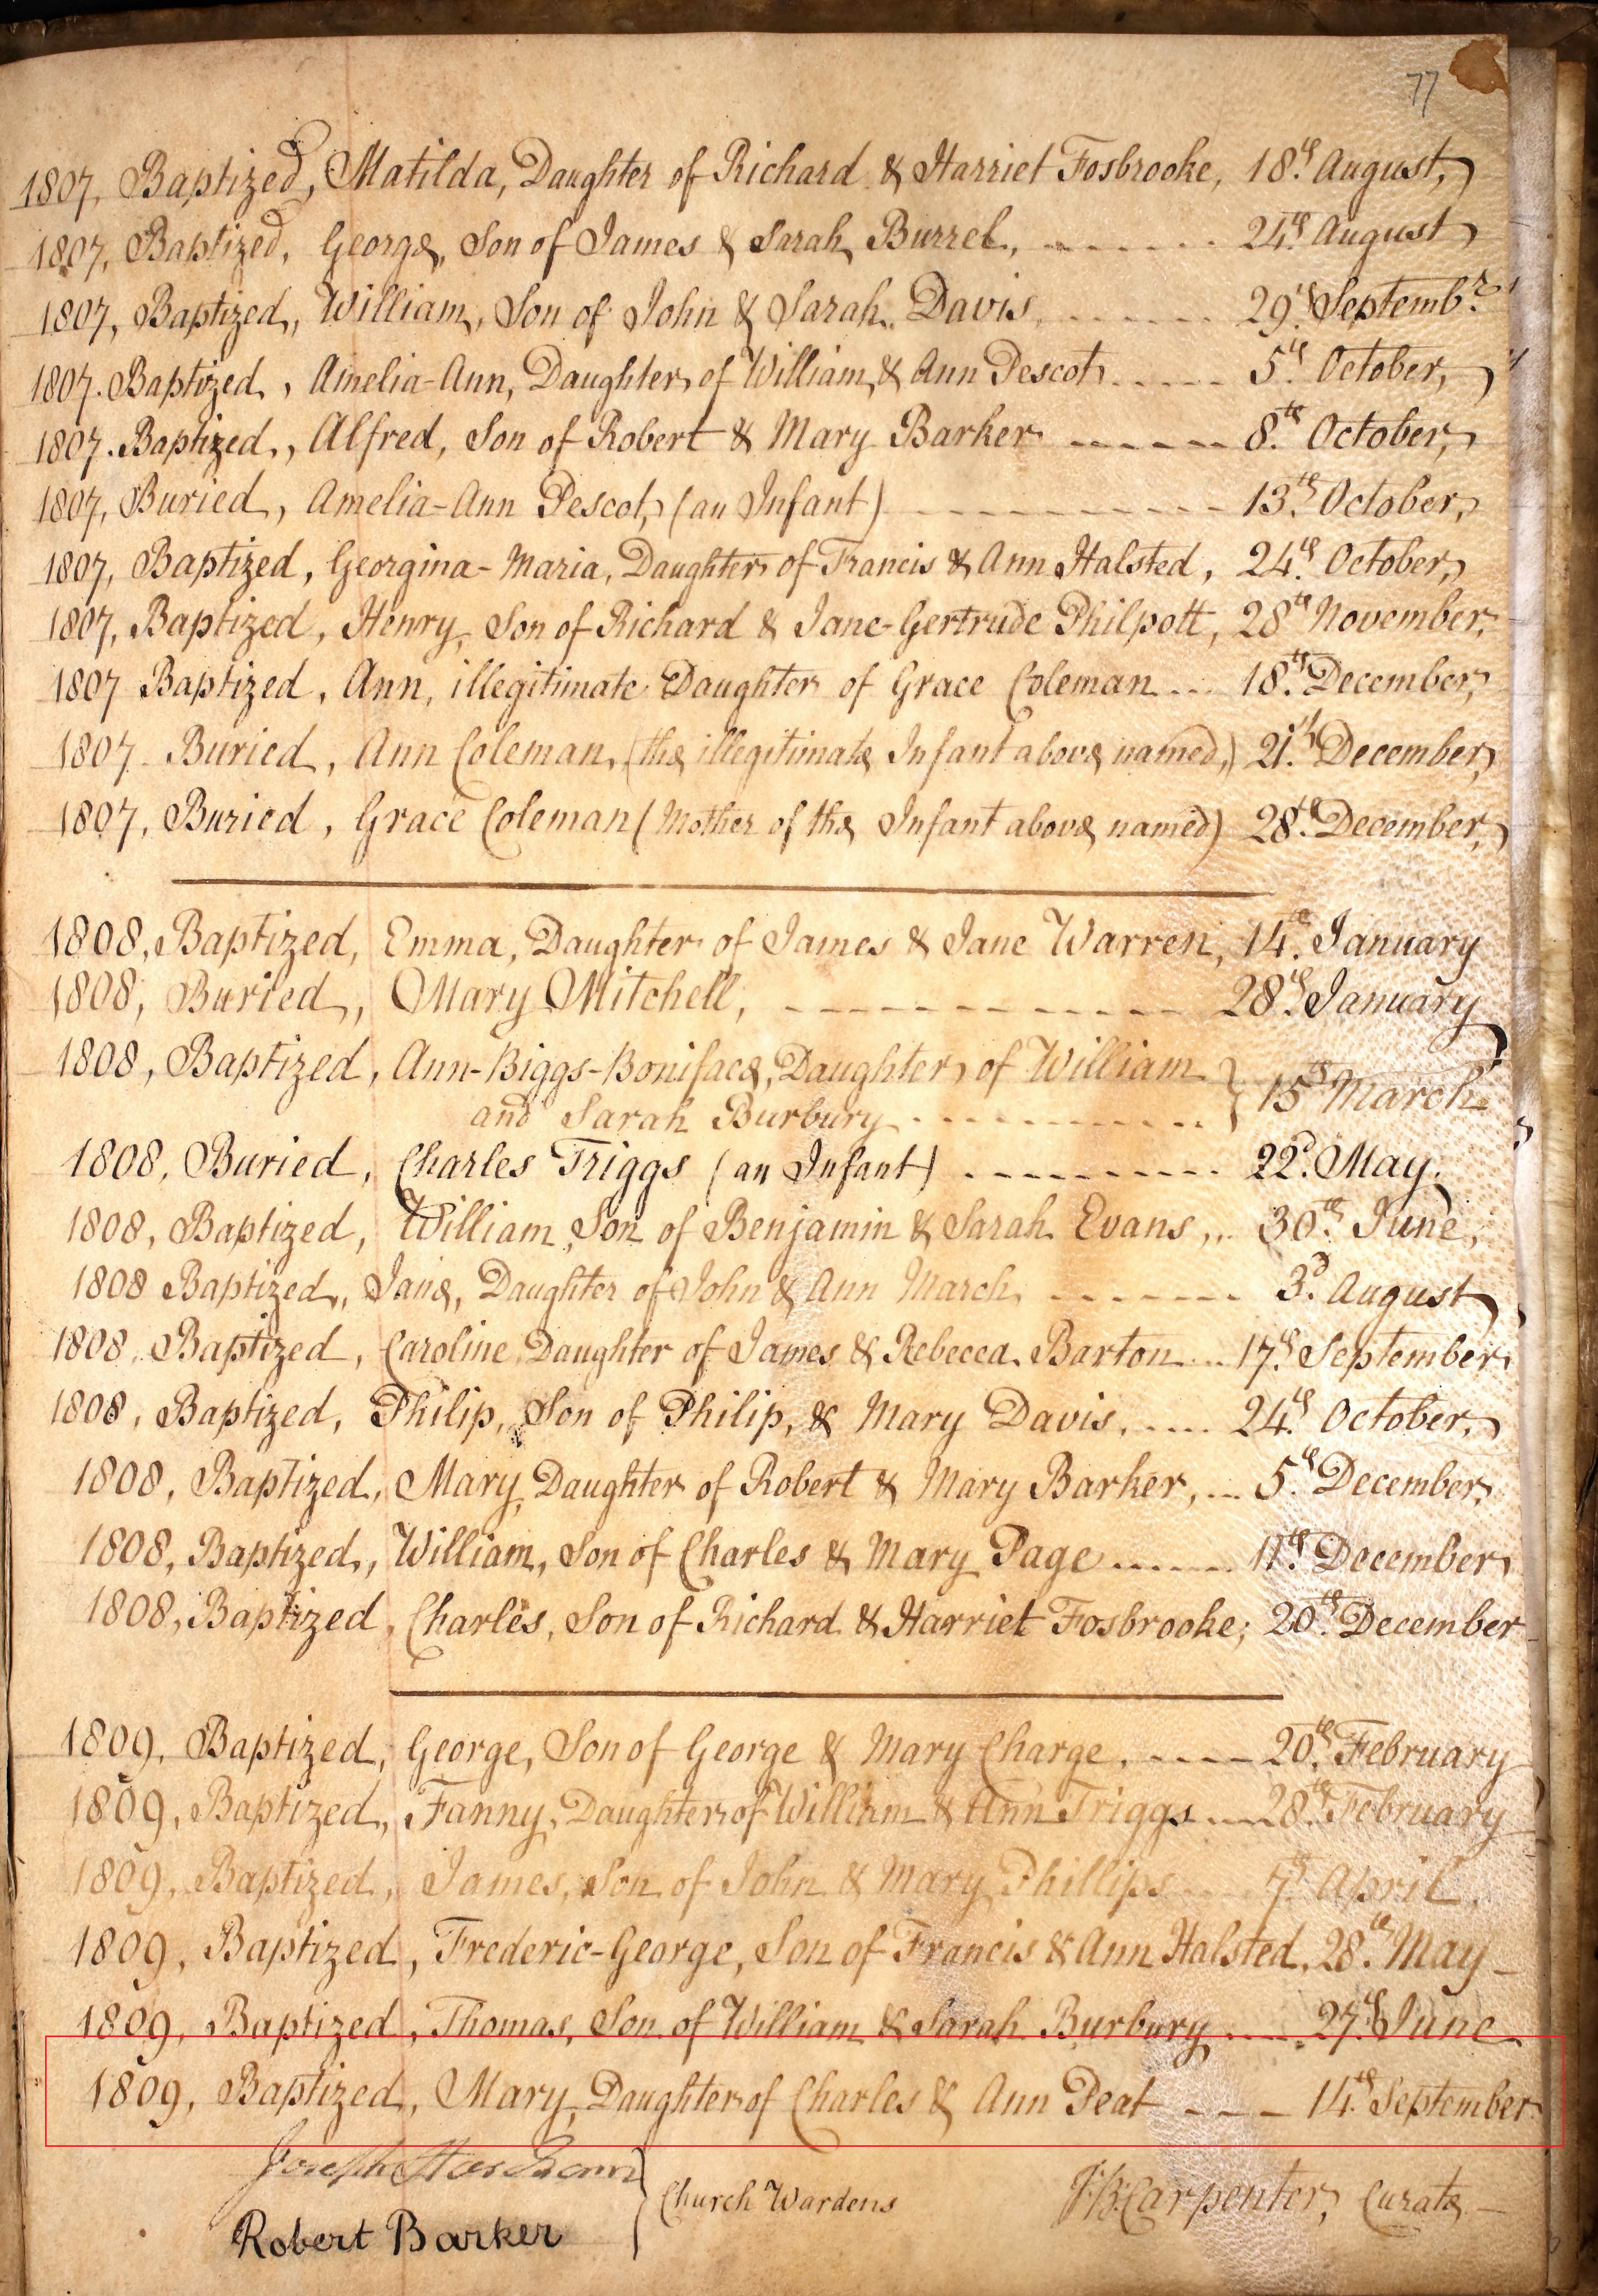 77
1807, Baptized, Matilda, Daughter of Richard & Harriet Fosbrooke, 18th August,
1807, Baptized, George, Son of James & Sarah Burrel, ------ 24th August
1807, Baptized, William, Son of John & Sarah Davis, ------ 29th Septembr
1807. Baptized, Amelia-Ann, Daughter of William & Ann Pescot ----- 5th October,
1807. Baptized, Alfred, Son of Robert & Mary Barker ------ 8th October,
1807, Buried, Amelia-Ann Pescot, (an Infant) ---------- 13th October,
1807, Baptized, Georgina-Maria, Daughter of Francis & Ann Halsted, 24th October,
1807, Baptized, Henry, Son of Richard & Jane-Gertrude Philpott, 28th November,
1807 Baptized, Ann, illegitimate Daughter of Grace Coleman ... 18th December,
1807 Buried, Ann Coleman, (the illegitimate Infant above named,) 21st December,
1807, Buried, Grace Coleman (Mother of the Infant above named) 28th December,
1808, Baptized, Emma, Daughter of James & Jane Warren, 14th January
1808, Buried, Mary Mitchell, ------------ 28th January
1808, Baptized, Ann-Biggs-Boniface, Daughter of William
and Sarah Burbury ----------- } 15th March
1808, Buried, Charles Triggs (an Infant) --------- 22d May.
1808, Baptized, William, Son of Benjamin & Sarah Evans, .. 30th June,
1808 Baptized, Jane, Daughter of John & Ann March, ------- 3d August
1808, Baptized, Caroline, Daughter of James & Rebecca Barton ... 17th September,
1808, Baptized, Philip, Son of Philip, & Mary Davis, .... 24th October,
1808, Baptized, Mary, Daughter of Robert & Mary Barker, ... 5th December,
1808, Baptized, William, Son of Charles & Mary Page ...... 11th December,
1808, Baptized, Charles, Son of Richard & Harriet Fosbrooke; 20th December
1809, Baptized, George, Son of George & Mary Charge, ---- 20th February
1809, Baptized, Fanny, Daughter of William & Ann Triggs ---- 28th February
1809, Baptized, James, Son of John & Mary Phillips ---- 7th April,
1809, Baptized, Frederic-George, Son of Francis & Ann Halsted, 28th May
1809, Baptized, Thomas, Son of William & Sarah Burbury ---- 27th June
1809, Baptized, Mary, Daughter of Charles & Ann Peat --- 14th September
Joseph
Robert Barker } Church Wardens
J:B:Carpenter, Curate